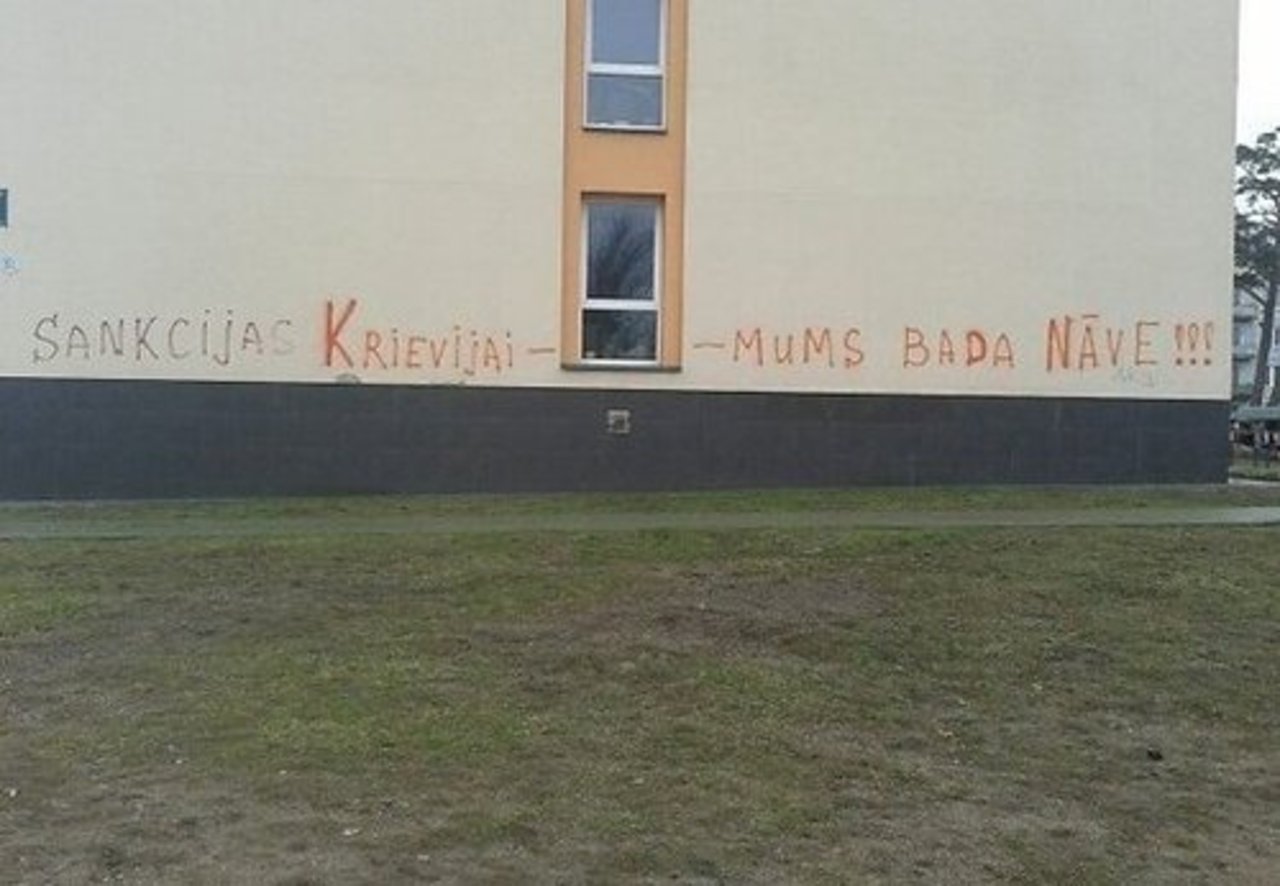 SANKCIJAS KRIEVIJAI – – MUMS BADA NĀVE !!!